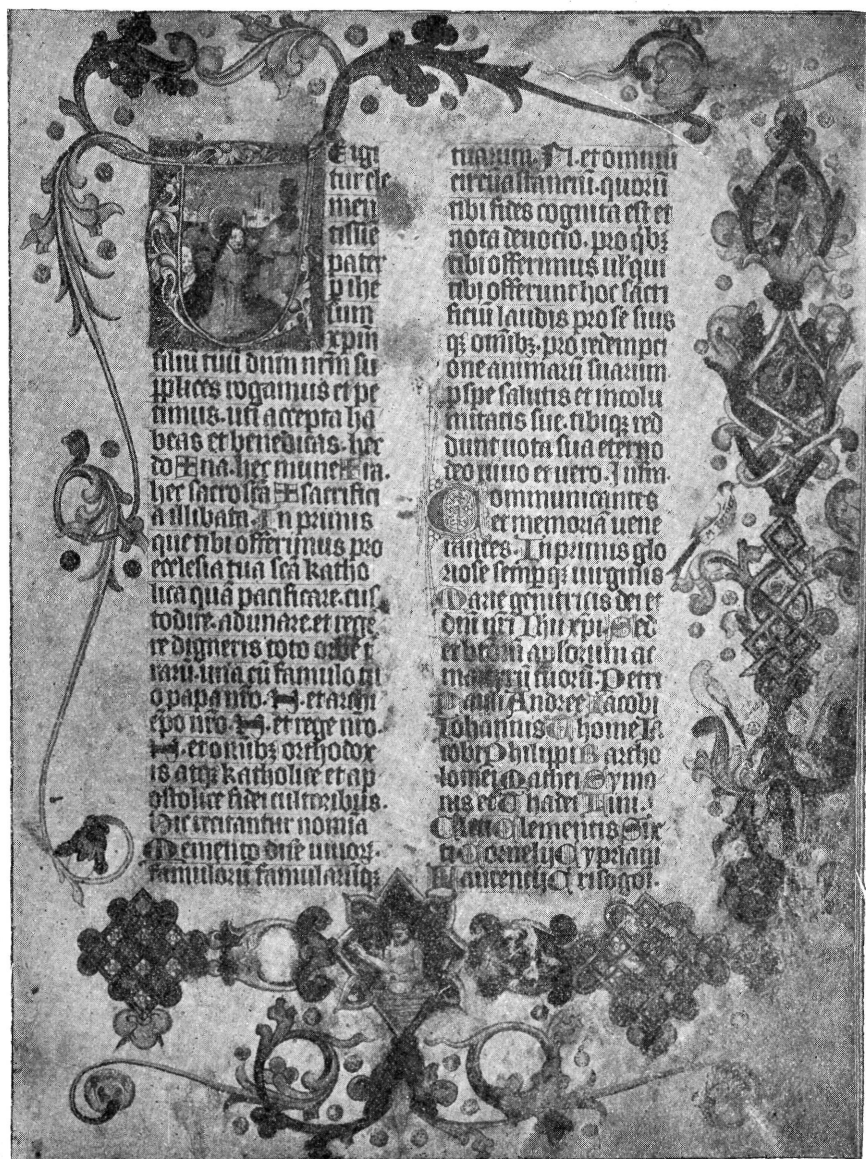 T
E igi
tur cle
men
tissīe
pater
p ihe
sum
xpm̄
filiū tuū dn̄m nr̄m su
pplices rogamus et pe
timus. uti accepta ha
beas et benedicas. hec
do✠na. hec mune✠ra.
hec sacrosctā✠sacrifici
a illibata. In primis
que tibi offerimus pro
ecclesia tua sc̄a katho
lica quā pacificare. cus
todire. adunare. et rege
re digneris toto orbe t
rarū. una cū famulo tu
o papa nr̄o. N. et archi
ep̄o nr̄o. N. et rege nr̄o.
N. et omībꝫ orthodox
is atqꝫ katholice et ap
ostolice fidei cultoribus.
Hic recitantur nomīa
Memento dn̄e uiuor.
famulorū famularūqꝫ
tuarum. N. et omniū
circūastanciū. quorū
tibi fides cognita est et
nota deuocio. pro qbꝫ
tibi offerimus ul' qui
tibi offerunt hoc sacri
ficiū laudis pro se suis
qꝫ omībꝫ. pro redempci
one animarū suarum.
p spe salutis et incolu
mitatis sue. tibiqꝫ red
dunt uota sua eterno
deo uiuo et uero. Infra.
Communicantes
et memoriā uene
rantes. In primis glo
riose sempqꝫ uirginis
Marie genitricis dei et
dn̄i nr̄i Ihū xpi. Sed
et btōrū aplorum ac
martyrū tuorū. Petri
Pauli Andree Iacobi
Iohannis Thome Ia
cobi Philippi Bartho
lomei Mathei Symo
nis et Thadei Lini.
Cleti Clementis Six
ti Cornelij Cypriani
Laurencij Crisogoī.